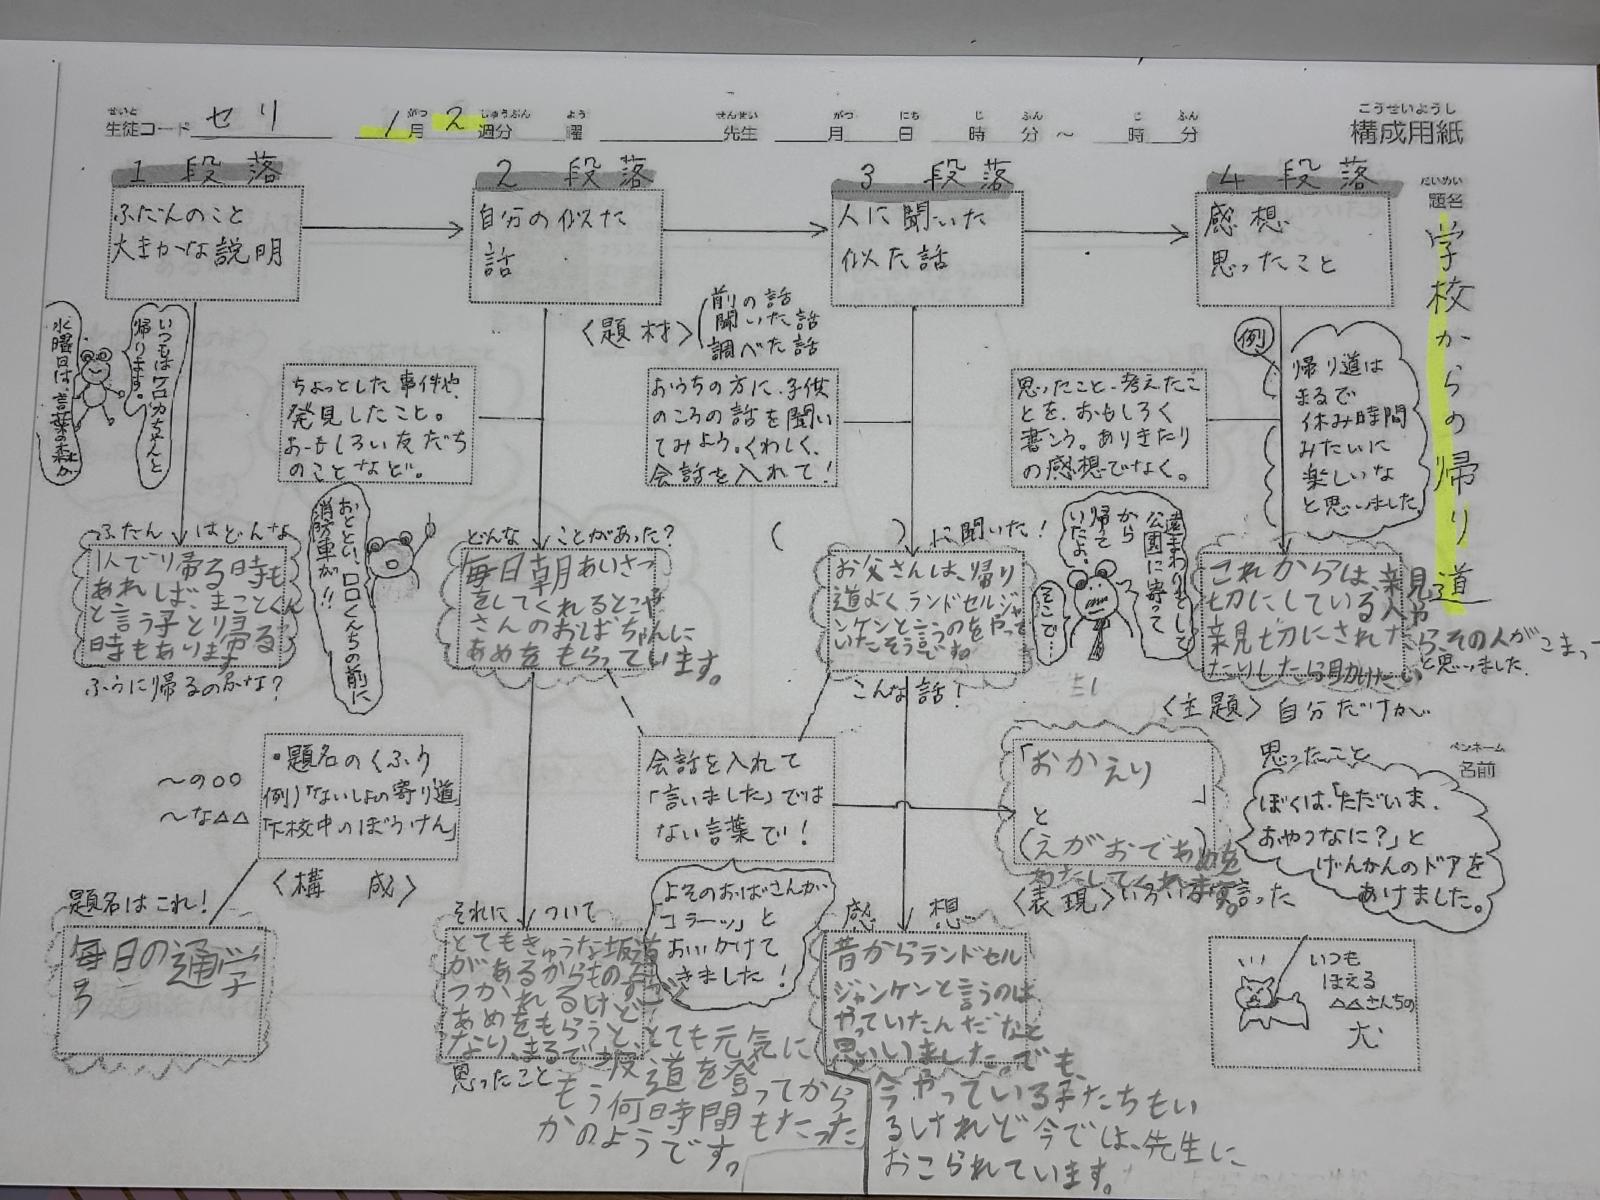 せいと
生徒コード セリ 1月 2週分 曜 先生 月 日 時 分 ～ 時 分
がつ しゅうぶん よう せんせい がつ にち じ ふん じ ふん
こうせいようし
構成用紙
だいめい
題名
学校からの帰り道
1 段落
ふだんのこと
大まかな説明
2 段落
自分の似た
話
3 段落
人に聞いた
似た話
4 段落
感想
思ったこと
いつもはケロカちゃんと
帰ります。
水曜日は、言葉の森が
ちょっとした事件や、
発見したこと。
おもしろい友だち
のことなど。
〈題材〉
前の話
聞いた話
調べた話
おうちの方に、子供
のころの話を聞い
てみよう。くわしく、
会話を入れて！
思ったこと、考えたこ
とを、おもしろく
書こう。ありきたり
の感想でなく。
例
帰り道は
まるで
休み時間
みたいに
楽しいな
と思いました。
ふだん はどんな
1人でり帰る時も
あれば、まことくん
と言う子とり帰る
時もあります
ふうに帰るのかな？
おととい、ロロくんちの前に
消防車が!!
どんな ことがあった？
毎日朝あいさつ
をしてくれるとこや
さんのおばちゃんに
あめをもらっています。
( )に聞いた！
お父さんは、帰り
道よくランドセルジャ
ンケンと言うのをやって
いたそうですね
こんな話！
遠まわりをして
公園に寄って
から
帰って
いたよ。
そこで…
これからは、親
切にしている人や
親切にされた らその人がこまっ
たりしたら助けたい と思いました。
〈主題〉自分だけが
思ったこと
ペンネーム
名前
・題名のくふう
例)「ないしょの寄り道」
「下校中のぼうけん」
～の○○
～な△△
〈構 成〉
題名はこれ！
毎日の通学
ろ
会話を入れて
「言いました」では
ない言葉で！
「おかえり
」
と
(えがおであめを
わたしてくれます。
〈表現〉いろいろな言った
ぼくは、「ただいま、
おやつなに？」と
げんかんのドアを
あけました。
よそのおばさんが
「コラーッ」と
おいかけて
きました！
それに ついて
とてもきゅうな坂道
があるからものすごく
つかれるけど
あめをもらうと、とても元気に
なり、まるで坂道を登ってから
もう何時間もたった
かのようです。
思ったこと
感 想
昔からランドセル
ジャンケンと言うのは
やっていたんだなと
思いいました。でも、
今やっている子たちもい
るけれど今では、先生に
おこられています。
いつも
ほえる
△△さんちの
犬